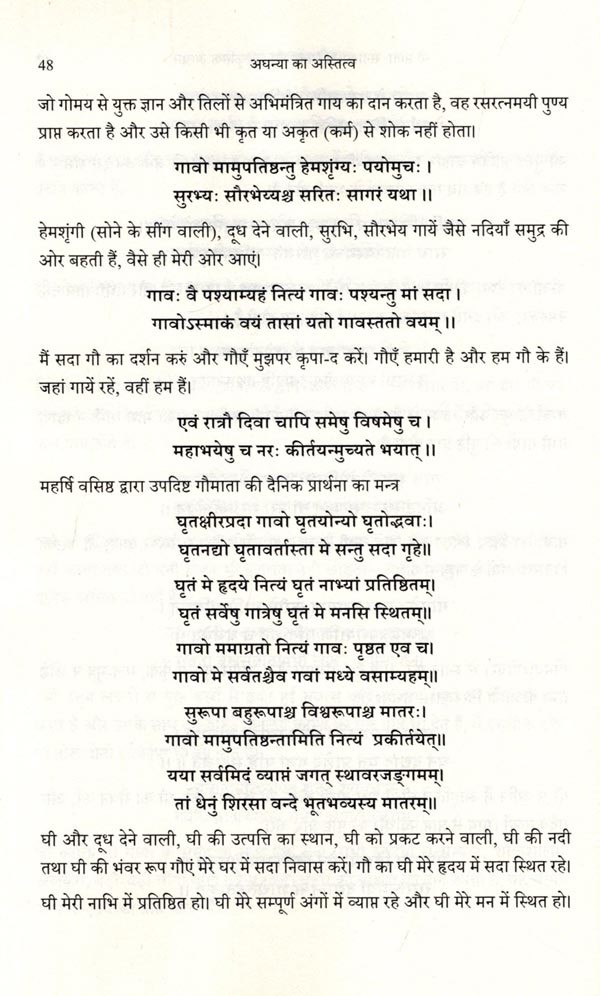 48
अघन्या का अस्तित्व
जो गोमय से युक्त ज्ञान और तिलों से अभिमंत्रित गाय का दान करता है, वह रसरत्नमयी पुण्य
प्राप्त करता है और उसे किसी भी कृत या अकृत (कर्म) से शोक नहीं होता।
गावो मामुपतिष्ठन्तु हेमशृंग्यः पयोमुचः ।
सुरभ्यः सौरभेय्यश्च सरितः सागरं यथा ।।
हेमशृंगी (सोने के सींग वाली), दूध देने वाली, सुरभि, सौरभेय गायें जैसे नदियाँ समुद्र की
ओर बहती हैं, वैसे ही मेरी ओर आएं।
गावः वै पश्याम्यहं नित्यं गावः पश्यन्तु मां सदा ।
गावोऽस्माकं वयं तासां यतो गावस्ततो वयम् ।।
मैं सदा गौ का दर्शन करुं और गौएँ मुझपर कृपा-द करें। गौएँ हमारी है और हम गौ के हैं।
जहां गायें रहें, वहीं हम हैं।
एवं रात्रौ दिवा चापि समेषु विषमेषु च।
महाभयेषु च नरः कीर्तयन्मुच्यते भयात्।।
महर्षि वसिष्ठ द्वारा उपदिष्ट गौमाता की दैनिक प्रार्थना का मन्त्र
घृतक्षीरप्रदा गावो घृतयोन्यो घृतोद्भवाः।
घृतनद्यो घृतावर्तास्ता मे सन्तु सदा गृहे॥
घृतं मे हृदये नित्यं घृतं नाभ्यां प्रतिष्ठितम्।
घृतं सर्वेषु गात्रेषु घृतं मे मनसि स्थितम्॥
गावो ममाग्रतो नित्यं गावः पृष्ठत एव च।
गावो मे सर्वतश्चैव गवां मध्ये वसाम्यहम्॥
सुरूपा बहुरूपाश्च विश्वरूपाश्च मातरः।
गावो मामुपतिष्ठन्तामिति नित्यं प्रकीर्तयेत्॥
यया सर्वमिदं व्याप्तं जगत् स्थावरजङ्गमम्।
तां धेनुं शिरसा वन्दे भूतभव्यस्य मातरम्॥
घी और दूध देने वाली, घी की उत्पत्ति का स्थान, घी को प्रकट करने वाली, घी की नदी
तथा घी की भंवर रूप गौएं मेरे घर में सदा निवास करें। गौ का घी मेरे हृदय में सदा स्थित रहे।
घी मेरी नाभि में प्रतिष्ठित हो। घी मेरे सम्पूर्ण अंगों में व्याप्त रहे और घी मेरे मन में स्थित हो।